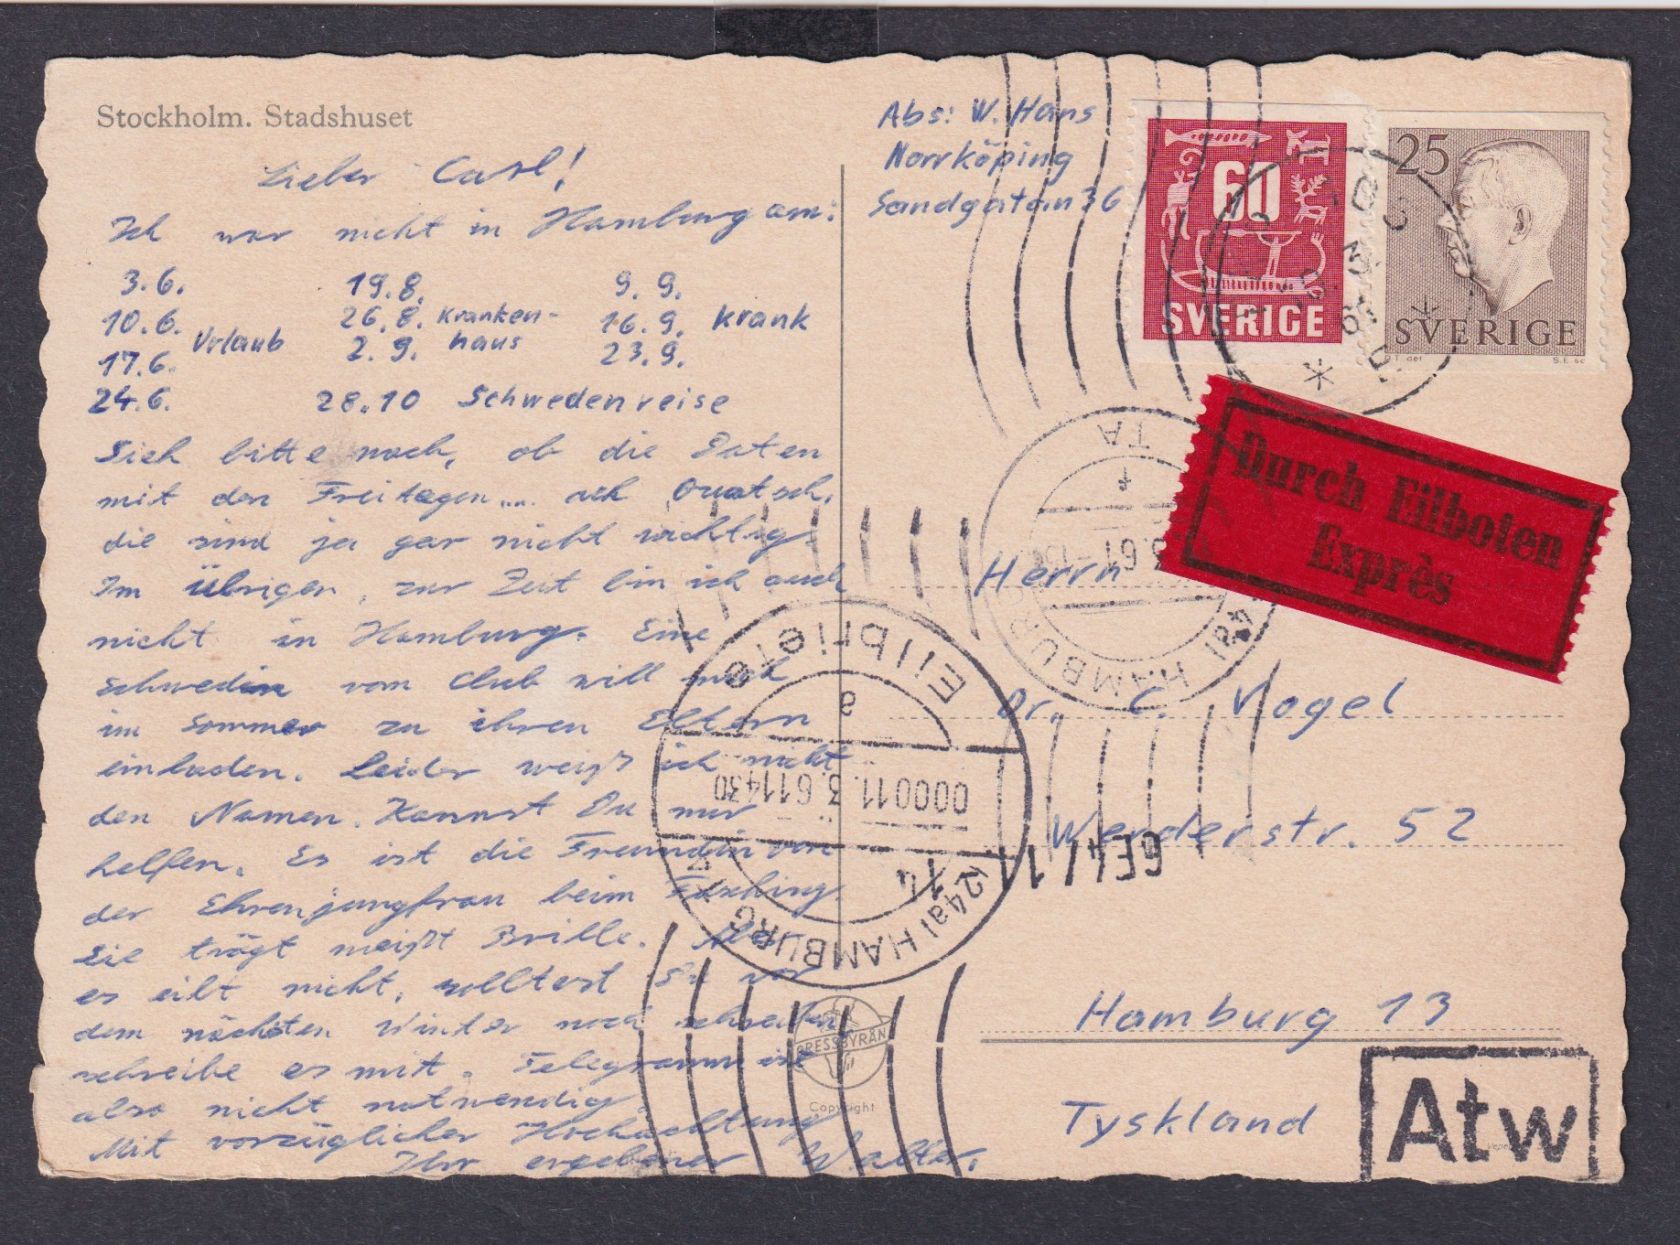 Stockholm. Stadshuset
Lieber Carl!
Ich war nicht in Hamburg am:
3.6. 19.8. 9.9.
10.6. Urlaub 26.8. Kranken- 16.9. krank
17.6. 2.9. haus 23.9.
24.6. 28.10 Schwedenreise
Sieh bitte nach, ob die Daten
mit den Freitagen.... ach Quatsch,
die sind ja gar nicht wichtig.
Im Übrigen, zur Zeit bin ich auch
nicht in Hamburg. Eine
Schwedin vom Club will mich
im Sommer zu ihren Eltern
einladen. Leider weiß ich nicht
den Namen. Kannst Du mir
helfen. Es ist die Freundin von
der Ehrenjungfrau beim Fasching.
Sie trägt meißt Brille. Also
es eilt nicht, solltest Du vor
dem nächsten Winter noch schreiben
schreibe es mit. Telegramm ist
also nicht notwendig.
Mit vorzüglicher Hochachtung
Ihr ergebener Walter.
Abs: W. Hans
Norrköping
Sandgatan 36
60
SVERIGE
25
SVERIGE
Durch Eilboten
Exprès
Herrn
Dr. C. Vogel
Werderstr. 52
Hamburg 13
Tyskland
Atw
Eilbriefe
a
000011.3.611430
k24a1 HAMBURG
HAMBURG
TA
PRESSBYRÅN
Copyright